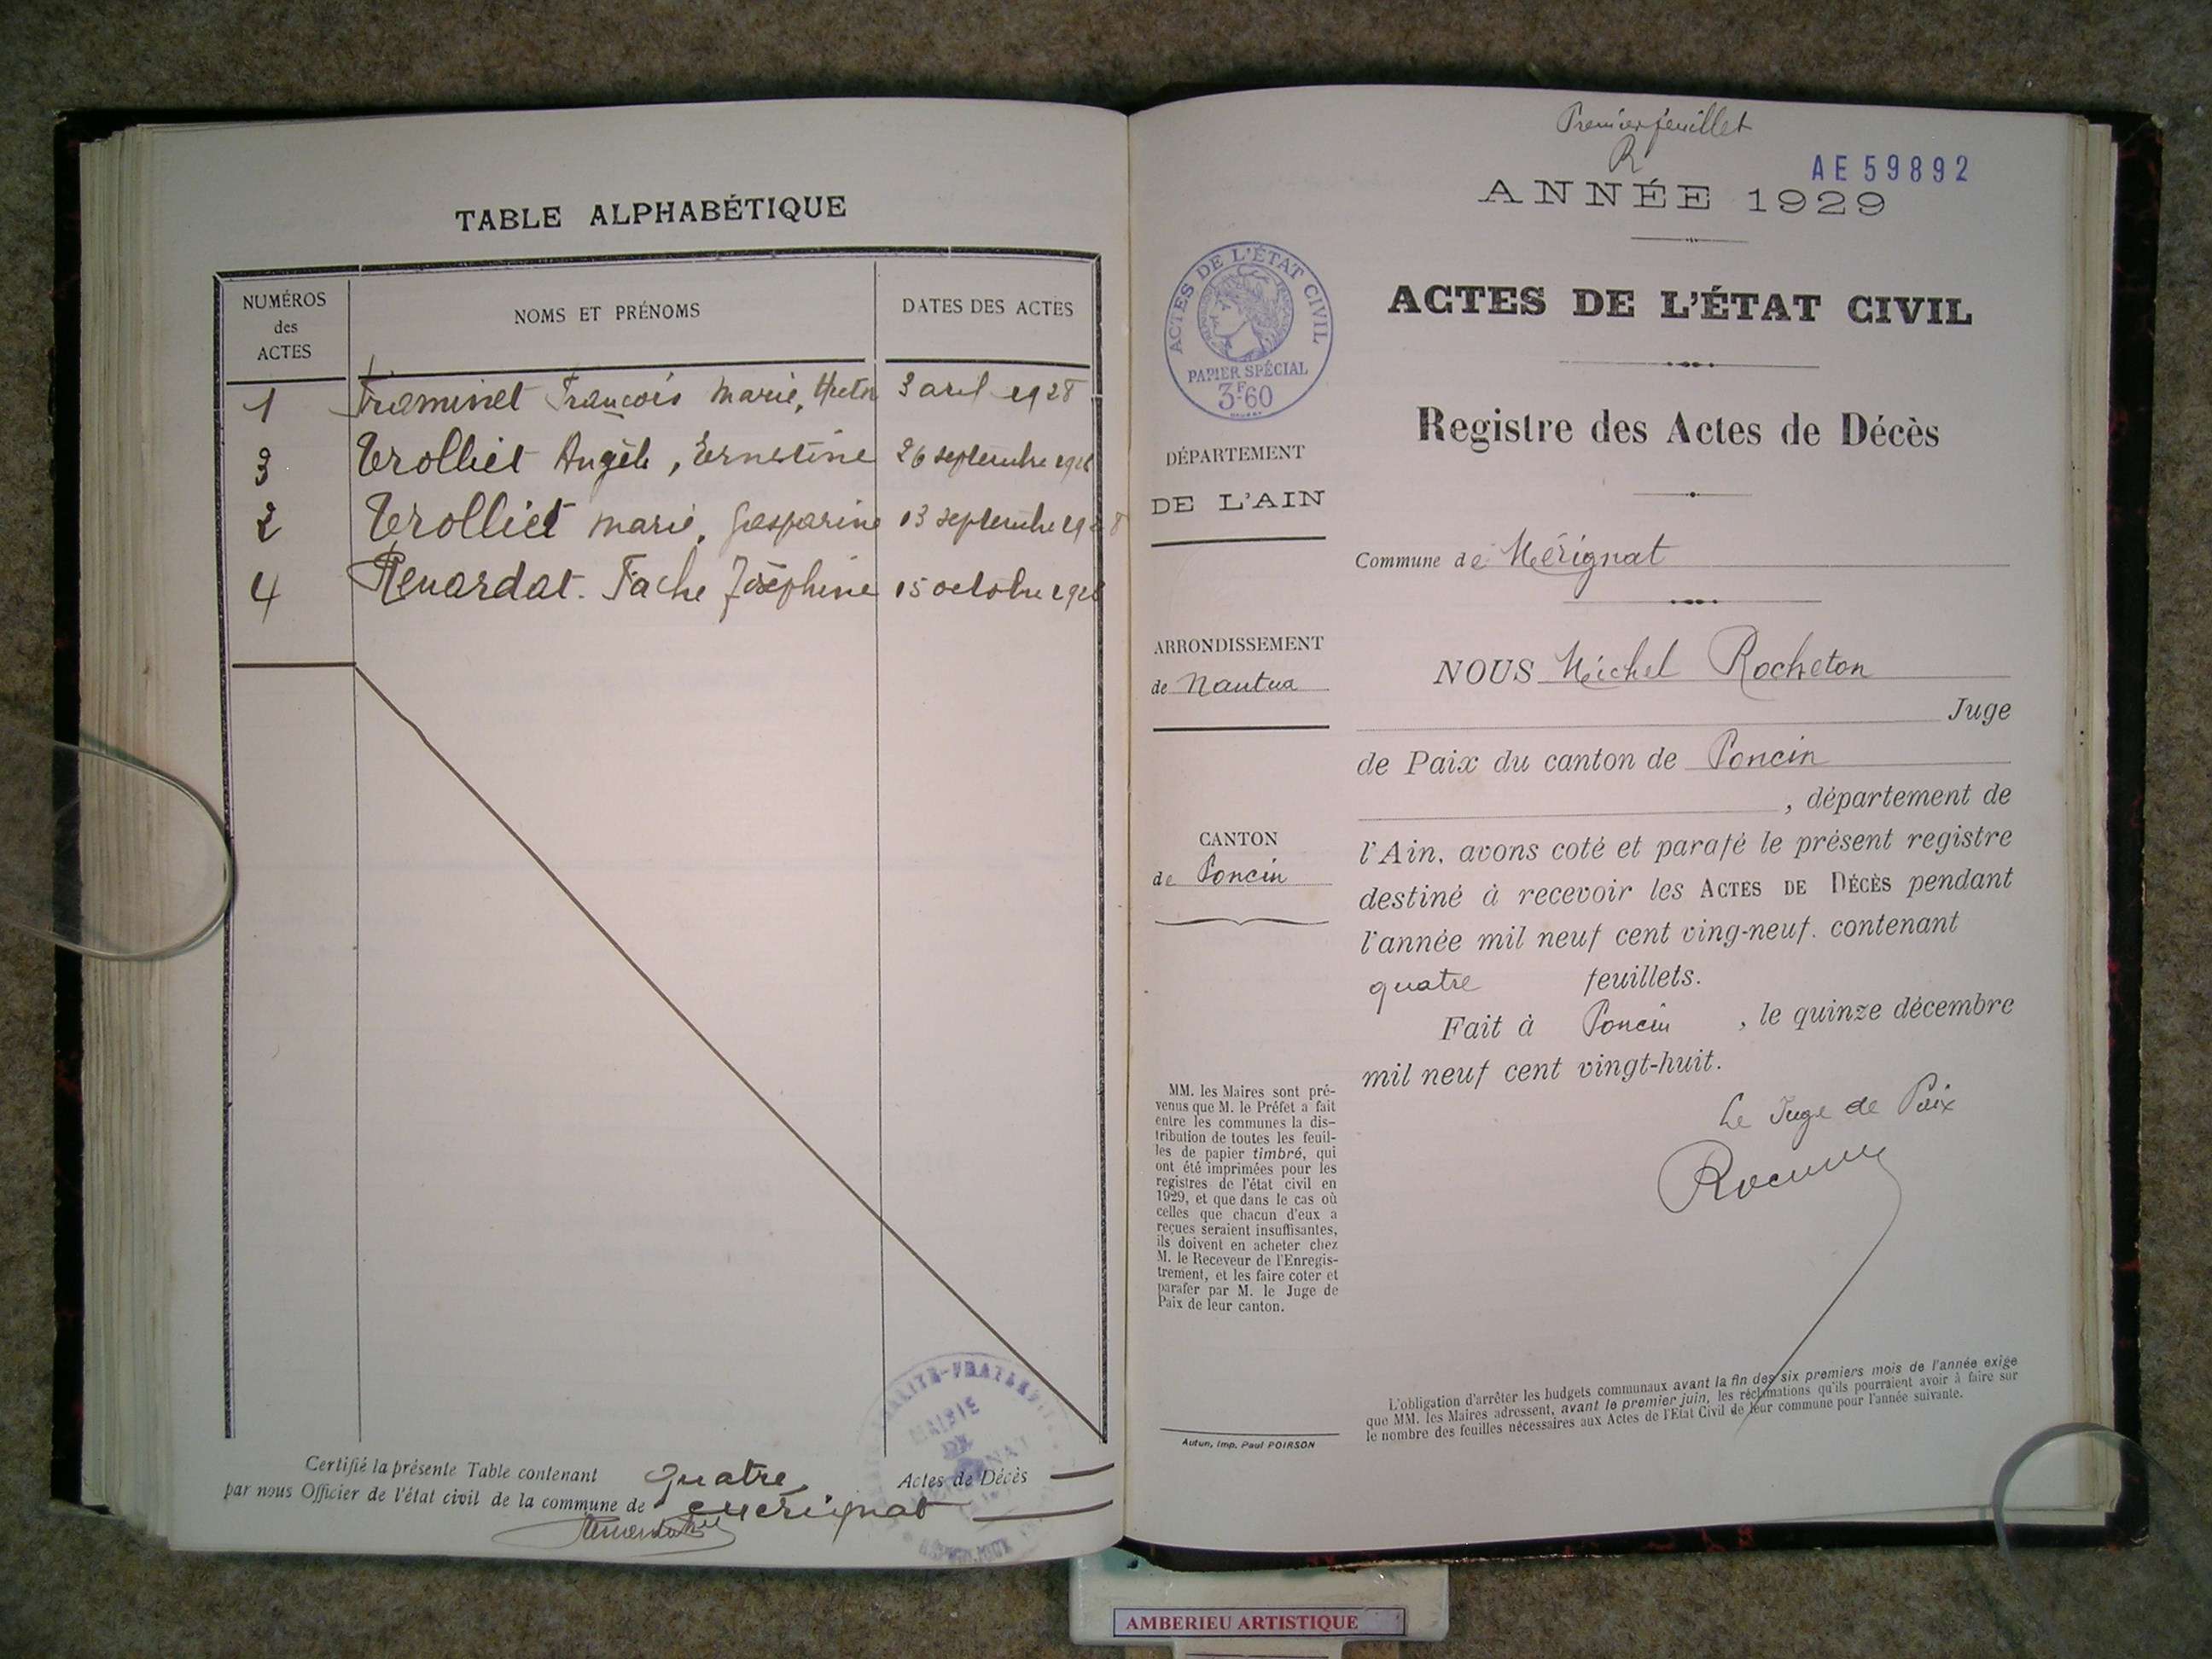 TABLE ALPHABÉTIQUE
NUMÉROS des ACTES
NOMS ET PRÉNOMS
DATES DES ACTES
1 François Marie, 3 1928
3 Trolliet Angèle, Ernestine 26 septembre 1928
2 Trolliet Marie, Gasparine 13 septembre 1928
4 Renardat. Fache Joséphine 15 octobre 1928
Certifié la présente Table contenant quatre Actes de Décès
par nous Officier de l'état civil de la commune de Mérignat
MAIRIE
DE
Premier feuillet
R
AE 59892
ANNÉE 1929
ACTES DE L'ÉTAT CIVIL
PAPIER SPÉCIAL
3F60
ACTES DE L'ÉTAT CIVIL
Registre des Actes de Décès
DÉPARTEMENT
DE L'AIN
Commune de Mérignat
ARRONDISSEMENT
de Nantua
NOUS Michel Rocheton
Juge
de Paix du canton de Poncin
, département de
CANTON
de Poncin
l'Ain, avons coté et parafé le présent registre
destiné à recevoir les ACTES DE DÉCÈS pendant
l'année mil neuf cent ving-neuf. contenant
quatre feuillets.
Fait à Poncin, le quinze décembre
mil neuf cent vingt-huit.
Le Juge de Paix
MM. les Maires sont pré-
venus que M. le Préfet a fait
entre les communes la dis-
tribution de toutes les feuil-
les de papier timbré, qui
ont été imprimées pour les
registres de l'état civil en
1929, et que dans le cas où
celles que chacun d'eux a
reçues seraient insuffisantes,
ils doivent en acheter chez
M. le Receveur de l'Enregis-
trement, et les faire coter et
parafer par M. le Juge de
Paix de leur canton.
L'obligation d'arrêter les budgets communaux avant la fin des six premiers mois de l'année exige
que MM. les Maires adressent, avant le premier juin, les réclamations qu'ils pourraient avoir à faire sur
le nombre des feuilles nécessaires aux Actes de l'Etat Civil de leur commune pour l'année suivante.
Autun, Imp. Paul POIRSON
AMBERIEU ARTISTIQUE